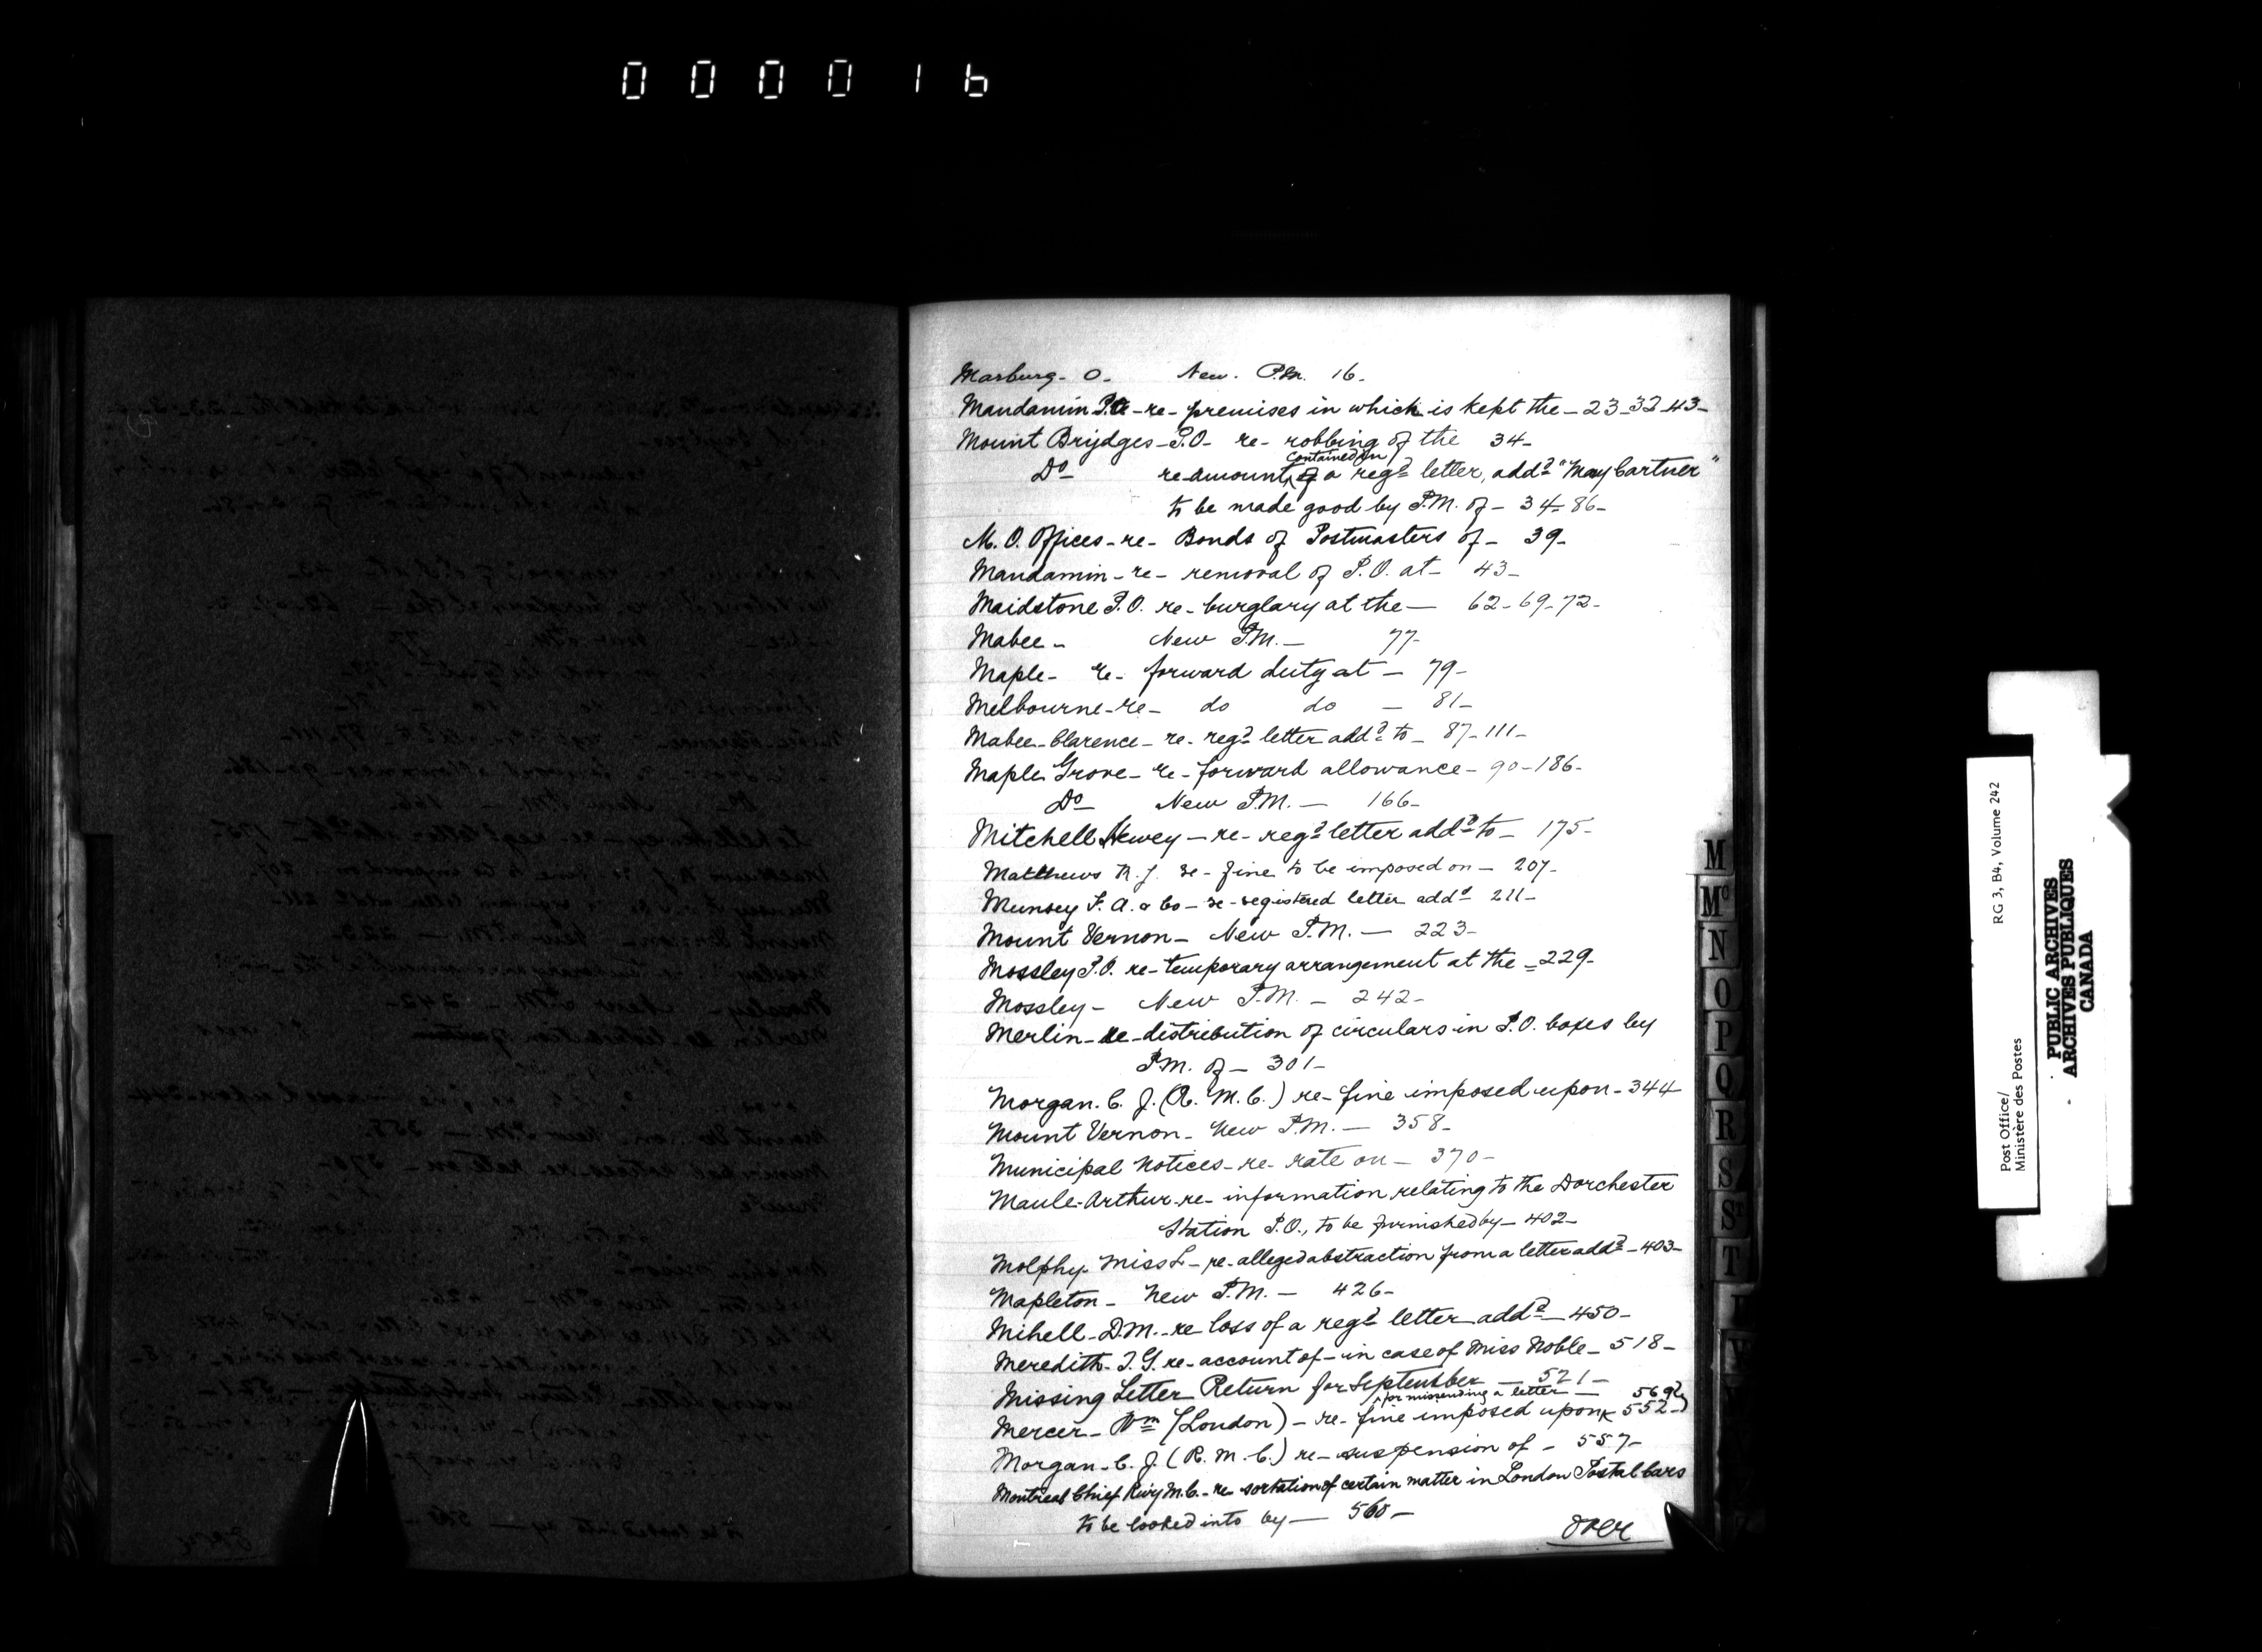 000016
Marburg - O - New. P.M. 16 -
Mandamin P.O - re - premises in which is kept the - 23 - 33 - 43 -
Mount Brydges - P.O - re - robbing of the 34 -
contained in
Do re amount of a regd letter, addd "May Cartner"
to be made good by P.M. of - 34 - 86 -
M. O. Offices - re - Bonds of Postmasters of - 39 -
Mandamin - re - removal of P.O. at - 43 -
Maidstone P.O. re - burglary at the - 62 - 69 - 72 -
Mabee - New P.M. - 77 -
Maple - re - forward duty at - 79 -
Melbourne - re - do do - 81 -
Mabee - Clarence - re - regd letter addd to - 87 - 111 -
Maple Grove - re - forward allowance - 90 - 186 -
Do New P.M. - 166 -
Mitchell Hewey - re - regd letter addd to - 175 -
Matthews R. J. re - fine to be imposed on - 207 -
Munsey F. A. & Co - re - registered letter addd 211 -
Mount Vernon - New P.M. - 223 -
Mossley P.O. re - temporary arrangement at the - 229 -
Mossley - New P.M. - 242 -
Merlin - re - distribution of circulars in P.O. boxes by
P.M. of - 301 -
Morgan. C. J. (R. M. C.) re - fine imposed upon - 344
Mount Vernon - New P.M. - 358 -
Municipal Notices - re - rate on - 370 -
Maule - Arthur - re - information relating to the Dorchester
Station P.O., to be furnished by - 402 -
Molphy - Miss L - re - alleged abstraction from a letter addd - 403 -
Mapleton - New P.M. - 426 -
Mihell - D.M. - re loss of a regd letter addd - 450 -
Meredith - T. G. re - account of - in case of Miss Noble - 518 -
Missing Letter Return for September - 521 -
for missending a letter - 569
Mercer - Wm (London) - re - fine imposed upon 552 -
Morgan - C. J. (R. M. C.) re - suspension of - 557 -
Montreal Chief Ry M.C. - re sortation of certain matter in London Postal Cars
to be looked into by - 560 -
over
M
Mc
N
O
P
Q
R
S
St
T
Post Office/
Ministère des Postes
RG 3, B4, Volume 242
PUBLIC ARCHIVES
ARCHIVES PUBLIQUES
CANADA